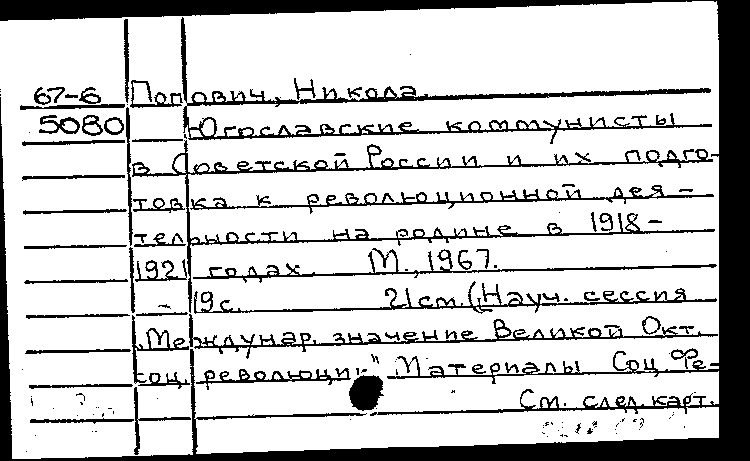 67-6 Попович, Никола.
5080 Югославские коммунисты
в Советской России и их подго-
товка к революционной дея-
тельности на родине в 1918-
1921 годах. М., 1967.
- 19 с. 21 см. (Науч. сессия
"Междунар. значение Великой Окт.
соц. революции" Материалы Соц. Фе-
См. след. карт.